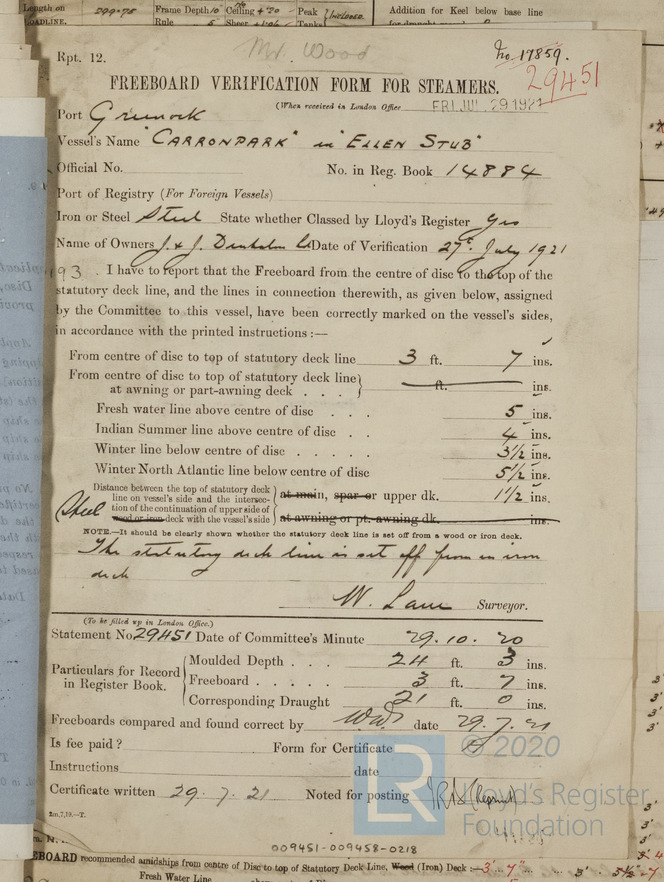 Length on 299.75 Frame Depth 10 Ceiling +20 Peak Included. Addition for Keel below base line
LOADLINE. Rule 5 Sheer +1.06 Tanks for draught
Mr. Wood
Rpt. 12. No. 17859.
FREEBOARD VERIFICATION FORM FOR STEAMERS. 29451
(When received in London Office FRI. JUL. 29 1921
Port Greenock
Vessel's Name "CARRONPARK" "ELLEN STUB"
Official No. No. in Reg. Book 14884
Port of Registry (For Foreign Vessels)
Iron or Steel Steel State whether Classed by Lloyd's Register yes
Name of Owners J. & J. Denholm Ld Date of Verification 27th July 1921
193. I have to report that the Freeboard from the centre of disc to the top of the
statutory deck line, and the lines in connection therewith, as given below, assigned
by the Committee to this vessel, have been correctly marked on the vessel's sides,
in accordance with the printed instructions :—
From centre of disc to top of statutory deck line 3 ft. 7 ins.
From centre of disc to top of statutory deck line
at awning or part-awning deck . . . ft. ins.
Fresh water line above centre of disc . . . 5 ins.
Indian Summer line above centre of disc . . 4 ins.
Winter line below centre of disc . . . . . 3½ ins.
Winter North Atlantic line below centre of disc 5½ ins.
Distance between the top of statutory deck
line on vessel's side and the intersec- at main, spar or upper dk. 1½ ins.
tion of the continuation of upper side of
Steel wood or iron deck with the vessel's side at awning or pt. awning dk. ins.
NOTE.—It should be clearly shown whether the statutory deck line is set off from a wood or iron deck.
The statutory deck line is set off from an iron
deck
W. Lane Surveyor.
(To be filled up in London Office.)
Statement No 29451 Date of Committee's Minute 29.10.20
Particulars for Record in Register Book.
Moulded Depth . . . 24 ft. 3 ins.
Freeboard . . . . . 3 ft. 7 ins.
Corresponding Draught 21 ft. 0 ins.
Freeboards compared and found correct by date 29.7.21
Is fee paid? Form for Certificate
Instructions date
Certificate written 29.7.21 Noted for posting
2m,7,19.—T.
© 2020
LR Lloyd's Register
Foundation
009451-009458-0218
EBOARD recommended amidships from centre of Disc to top of Statutory Deck Line, Wood (Iron) Deck :— 3' 7"
Fresh Water Line